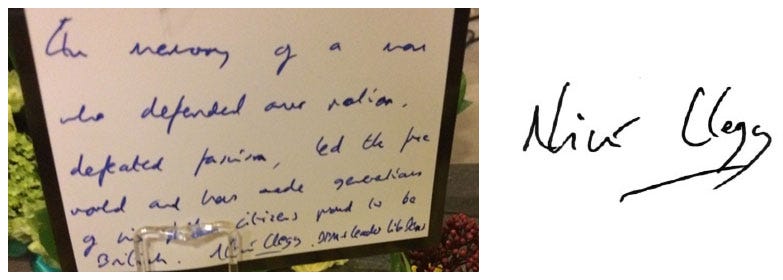 In memory of a man
who defended our nation,
defeated fascism, led the free
world and has made generations
of his citizens proud to be
British. Nick Clegg. DPM & Leader Lib Dems
Nick Clegg